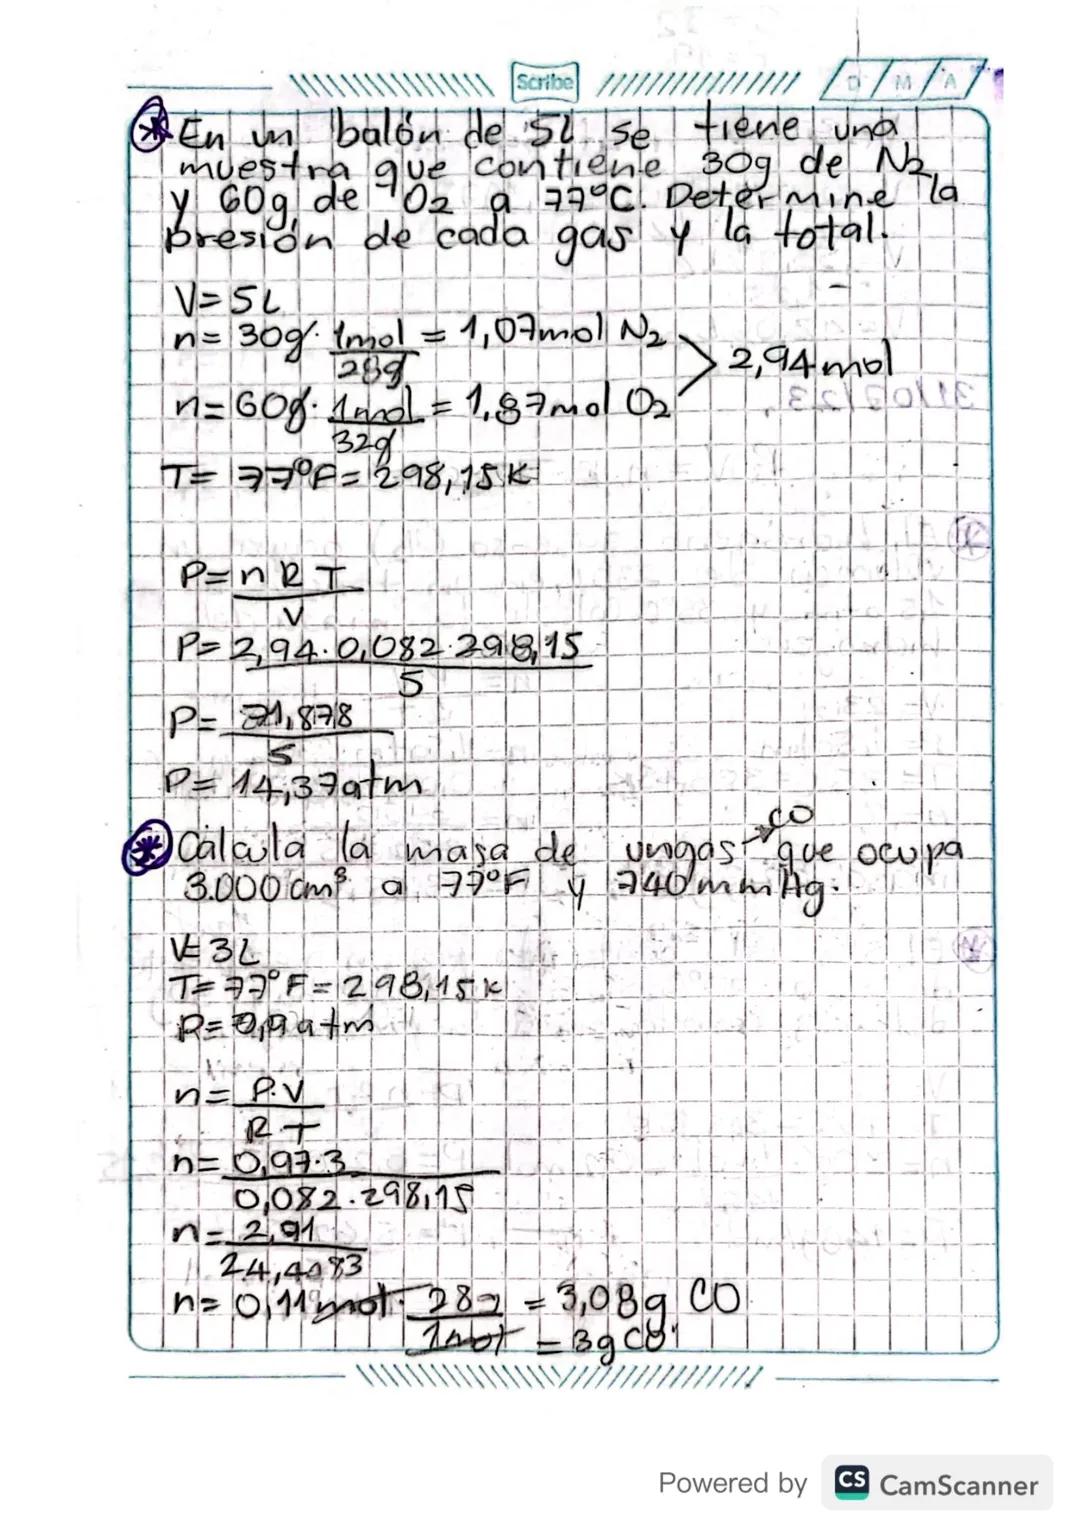 Scribe
D / M / A
En un balón de 5L se tiene una
muestra que contiene 30g de N2
y 60g de O2 a 77°C. Determine la
presión de cada gas y la total.
V= 5L
n= 30g · 1mol = 1,07mol N2
28g
2,94 mol
n= 60g · 1mol = 1,87mol O2
32g
T= 77°F = 298,15K
P= n R T
V
P= 2,94 · 0,082 · 298,15
5
P= 71,878
5
P= 14,37atm
CO
Calcula la masa de un gas que ocupa
3.000 cm³ a 77°F y 740 mmHg.
V= 3L
T= 77°F = 298,15K
P= 0,9 atm
n= P.V
R.T
n= 0,97·3
0,082 · 298,15
n= 2,91
24,4083
n= 0,11 mol · 28g = 3,08g CO
1mol = 3g CO
31/03/23
Powered by CS CamScanner